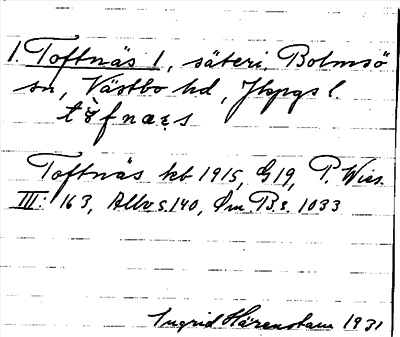 1. Toftnäs 1, säteri, Bolmsö
sn, Västbo hd, Jkpgs l.
tò̩fnæ̩s
Toftnäs kb 1915, G19, P. Wies.
III: 163, Allvs. 140, Öm B. s. 1033
Ingrid Härenstam 1931